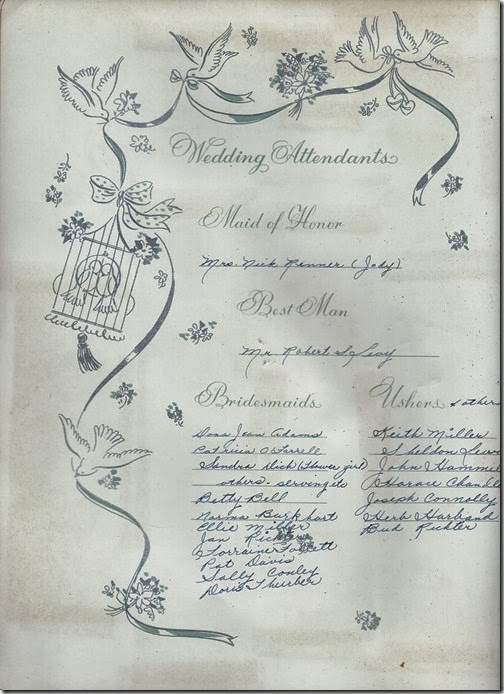 Wedding Attendants
Maid of Honor
Mrs. Nick Renner (Jody)
Best Man
Mr. Robert S. Levy
Bridesmaids
Dona Jean Adams
Patricia O'Farrell
Sandra Dich (flower girl)
others - serving etc
Betty Bell
Norma Burkhart
Ellie Miller
Jan
Lorraine
Pat Davis
Sally Conley
Doris Thurber
Ushers
Keith Miller
Sheldon
John Hammel
Horace Chandl
Joseph Connolly
Herb Harband
Bud Richter